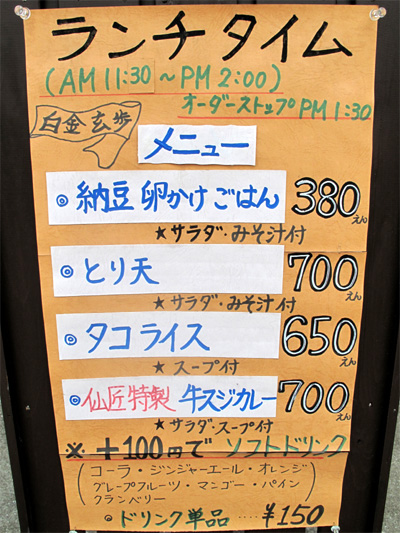 ランチタイム
(AM 11:30 ~ PM 2:00)
オーダーストップ PM 1:30
白金 玄歩
メニュー
◎ 納豆 卵かけ ごはん 380えん
★ サラダ・みそ汁付
◎ とり天 700えん
★ サラダ・みそ汁付
◎ タコライス 650えん
★ スープ付
◎ 仙匠特製 牛スジカレー 700えん
★ サラダ・スープ付
※ +100円で ソフトドリンク
(コーラ・ジンジャーエール・オレンジ
グレープフルーツ・マンゴー・パイン
クランベリー)
◎ ドリンク単品 .... ¥150